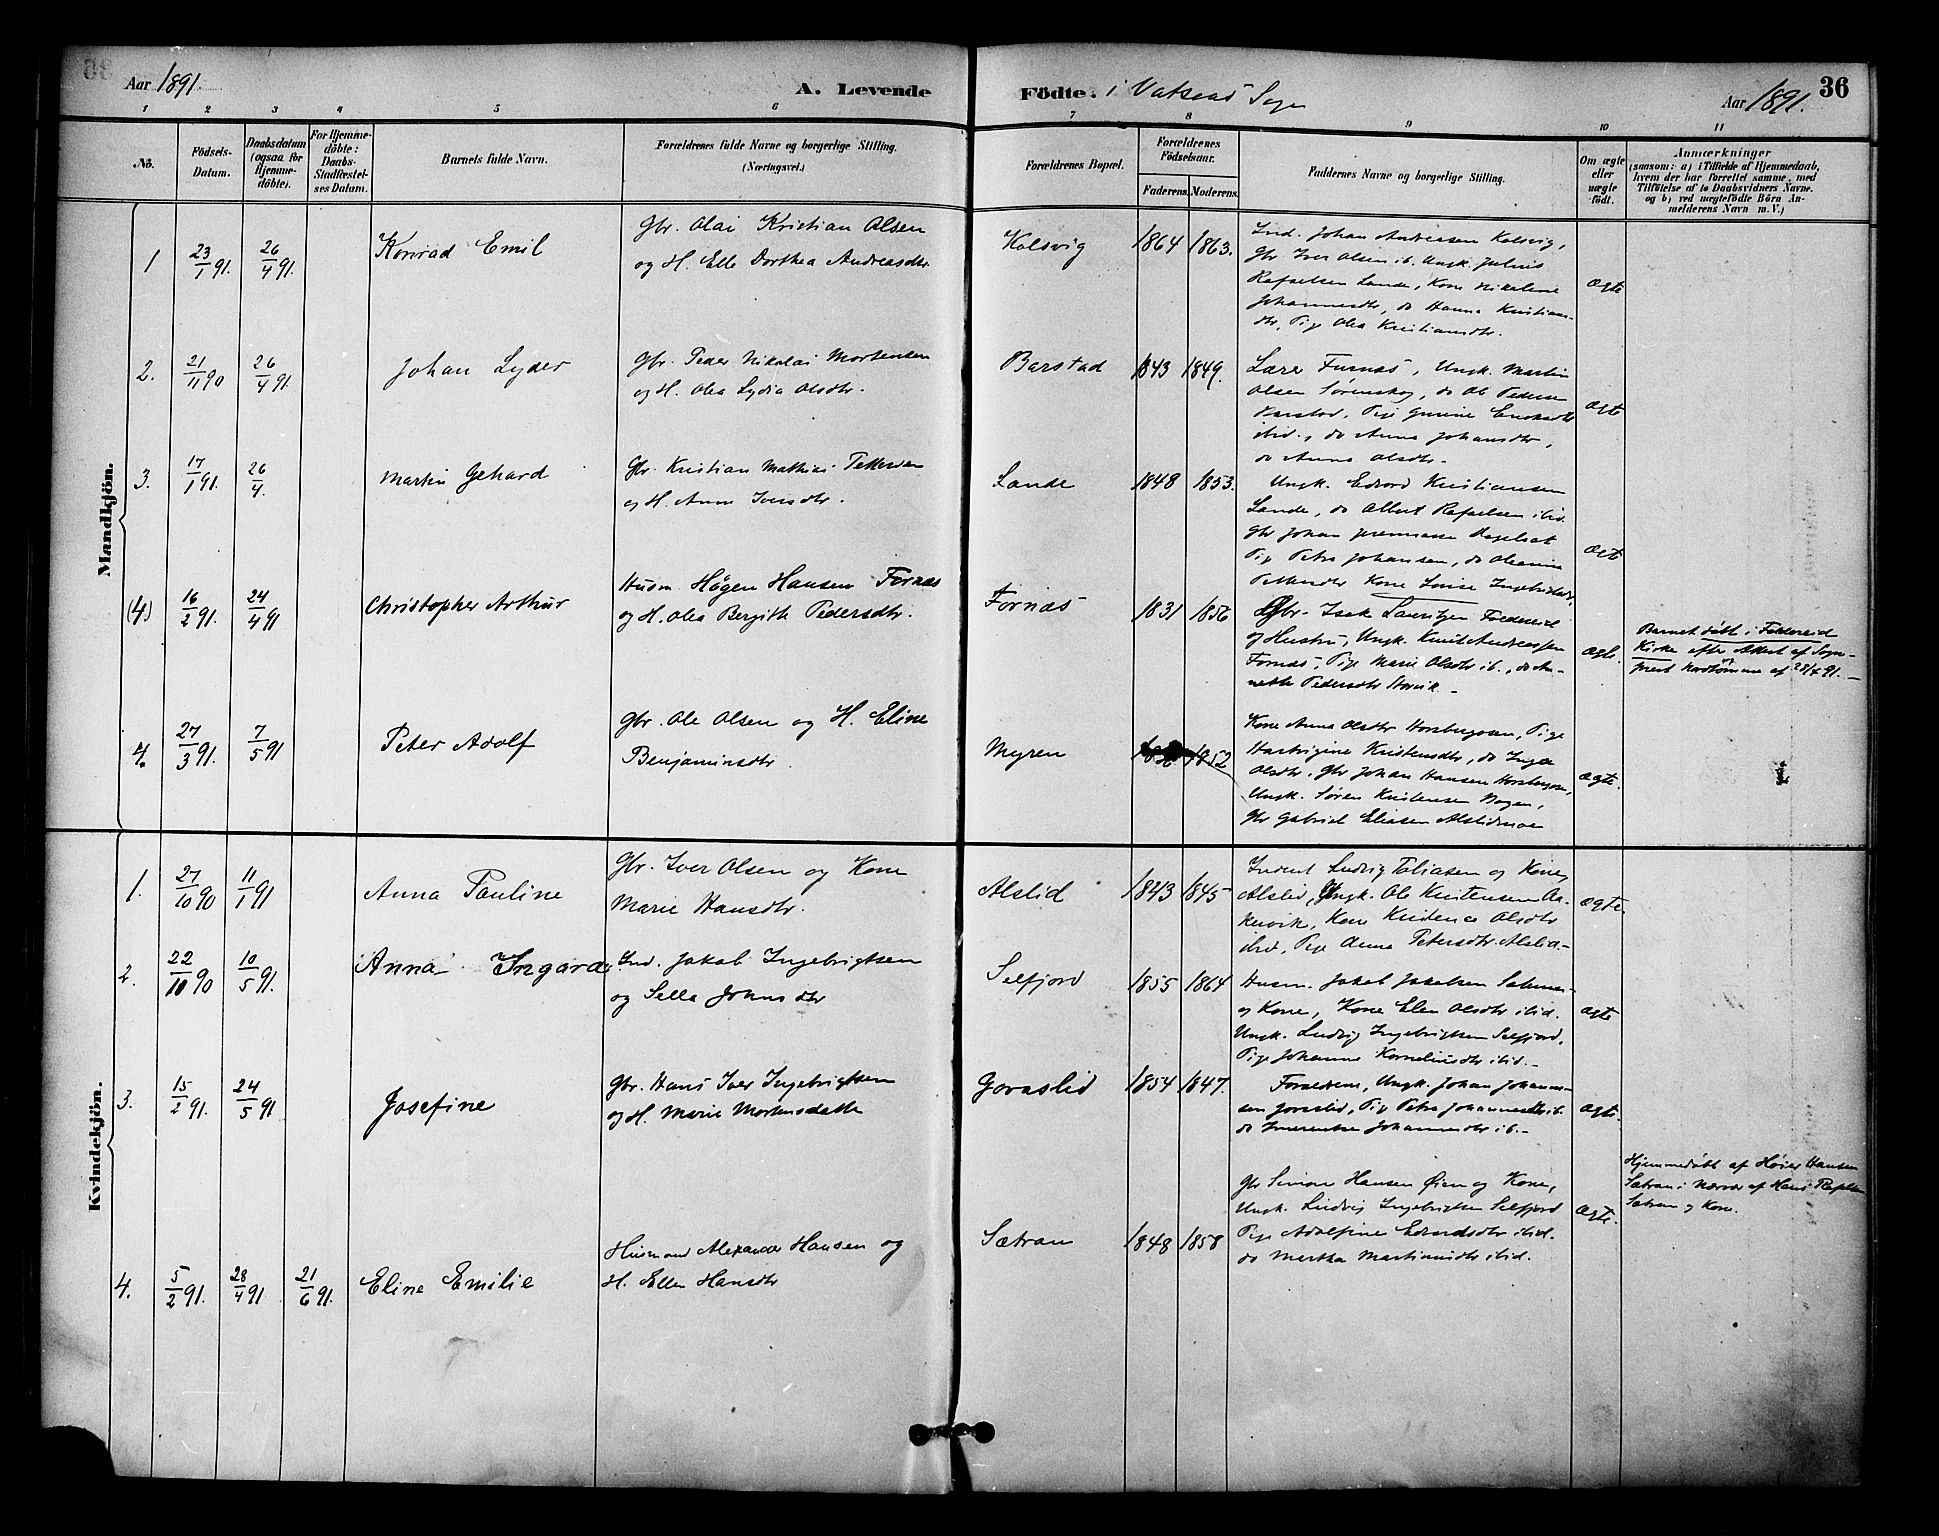 Aar 1891.
A. Levende Födte. i Vatsaas Sogn
Aar 1891. 36
1 2 3 4 5 6 7 8 9 10 11
No.
Födsels-Datum.
Daabsdatum (ogsaa for Hjemmedöbte).
For Hjemmedöbte: Daabs-Stadfæstelses Datum.
Barnets fulde Navn.
Forældrenes fulde Navne og borgerlige Stilling. (Næringsvei.)
Forældrenes Bopæl.
Forældrenes Födselsaar.
Faderens. Moderens.
Faddernes Navne og borgerlige Stilling.
Om ægte eller uægte födt.
Anmærkninger
(saasom: a) i Tilfælde af Hjemmedaab,
hvem der har forrettet samme, med
Tilföielse af to Daabsvidners Navne.
og b) ved uægtefödte Börn Anmelderens Navn m. V.)
Mandkjön.
1 23/1 91. 26/4 91. Konrad Emil
Gbr. Olai Kristian Olsen
og H. Elle Dorthea Andreasdtr
Kolsvig 1864 1863.
Ind. Johan Andreasen Kolsvig,
Gbr Iver Olsen ib. Ungk. Julius
Rafaelsen Sande, Kone Nikoline
Johannesdtr, do Hanna Kristians-
dtr, Pige Olea Kristiansdtr.
ægte
2. 21/11 90 26/4 91. Johan Lyder
Gbr. Peder Nikolai Mortensen
og H. Olea Lydia Olsdtr.
Barstad 1843 1849.
Lærer Furnæs, Ungk. Martin
Olsen Sørenskog, do Ole Pedersen
Barstad, Pige Gurine Enoksdtr
ibid., do Anna Johansdtr,
do Anna Olsdtr.
ægte
3. 17/1 91. 26/4. Martin Gehard
Gbr. Kristian Mathias Pettersen
og H. Anna Iversdtr.
Sande 1848 1853.
Ungk. Edvard Kristiansen
Sande, do Albert Rafaelsen ibid.
Gbr Johan
Pige Petra Johansen, do Oleanna
Pettersdtr Kone Lovise Ingebrigtsdtr,
ægte
(4) 16/2 91. 24/4 91 Christopher Arthur
Husm. Högen Hansen Fornæs
og H. Olea Bergitte Pedersdtr.
Fornæs 1831 1856
Gbr. Isak Lauritzen Foldereid
og Hustru, Ungk. Knut Andreassen
Fornæs, Pige Marie Olsdtr ib., do An-
nette Pedersdtr Storvik.
ægte.
Barnet döbt i Foldereid
Kirke efter Attest af Sogne-
præst Nordtömme af 28/4 91.
4. 27/3 91. 7/5 91 Peter Adolf
Gbr. Ole Olsen og H. Eline
Benjaminsdtr.
Myren 1852
Kone Anna Olsdtr Horsbergosen, Pige
Hartvigine Kristensdtr, do Inga
Olsdtr. Gbr Johan Hansen Horsbergosen,
Ungk. Søren Kristensen Bogen,
Gbr Gabriel Eliasen Alslidmoe
ægte.
Kvindekjön.
1. 27/10 90 11/1 91 Anna Pauline
Gbr. Iver Olsen og Kone
Marie Hansdtr.
Alslid 1843 1845
Inderst Ludvig Tobiasen og Kone,
Alslid, Ungk. Ole Kristensen Aa-
kervik, Kone Kristence Olsdtr
ibid, Pige Anna Petersdtr Alslid
ægte.
2. 22/10 90 10/5 91. Anna Ingarda
Ind. Jakob Ingebrigtsen
og Sella Johnsdtr
Selfjord 1855 1864
Husm. Jakob Jakobsen
og Kone, Kone Elen Olsdtr ibid.
Ungk. Ludvig Ingebrigtsen Selfjord,
Pige Johanna Korneliusdtr ibid.
ægte
3. 15/2 91. 24/5 91 Josefine
Gbr. Hans Iver Ingebrigtsen
og H. Marie Mortensdatter
Goraslid 1854 1847.
Forældrene, Ungk. Johan Johann-
sen Goraslid, Pige Petra Johannesdtr ib.
do Johannesdtr ib.
ægte.
4. 5/2 91. 28/4 91 21/6 91. Eline Emilie
Husmand Alexander Hansen og
H. Ellen Hansdtr
Sætran 1848 1858
Gbr Simon Hansen Øien og Kone,
Ungk. Ludvig Ingebrigtsen Selfjord
Pige Adolfine Edvardsdtr ibid.
do Mertha Martinusdtr ibid.
ægte.
Hjemmedöbt af Höier Hansen
Sætran i Nærvær af Hans
Sætran og Kone.